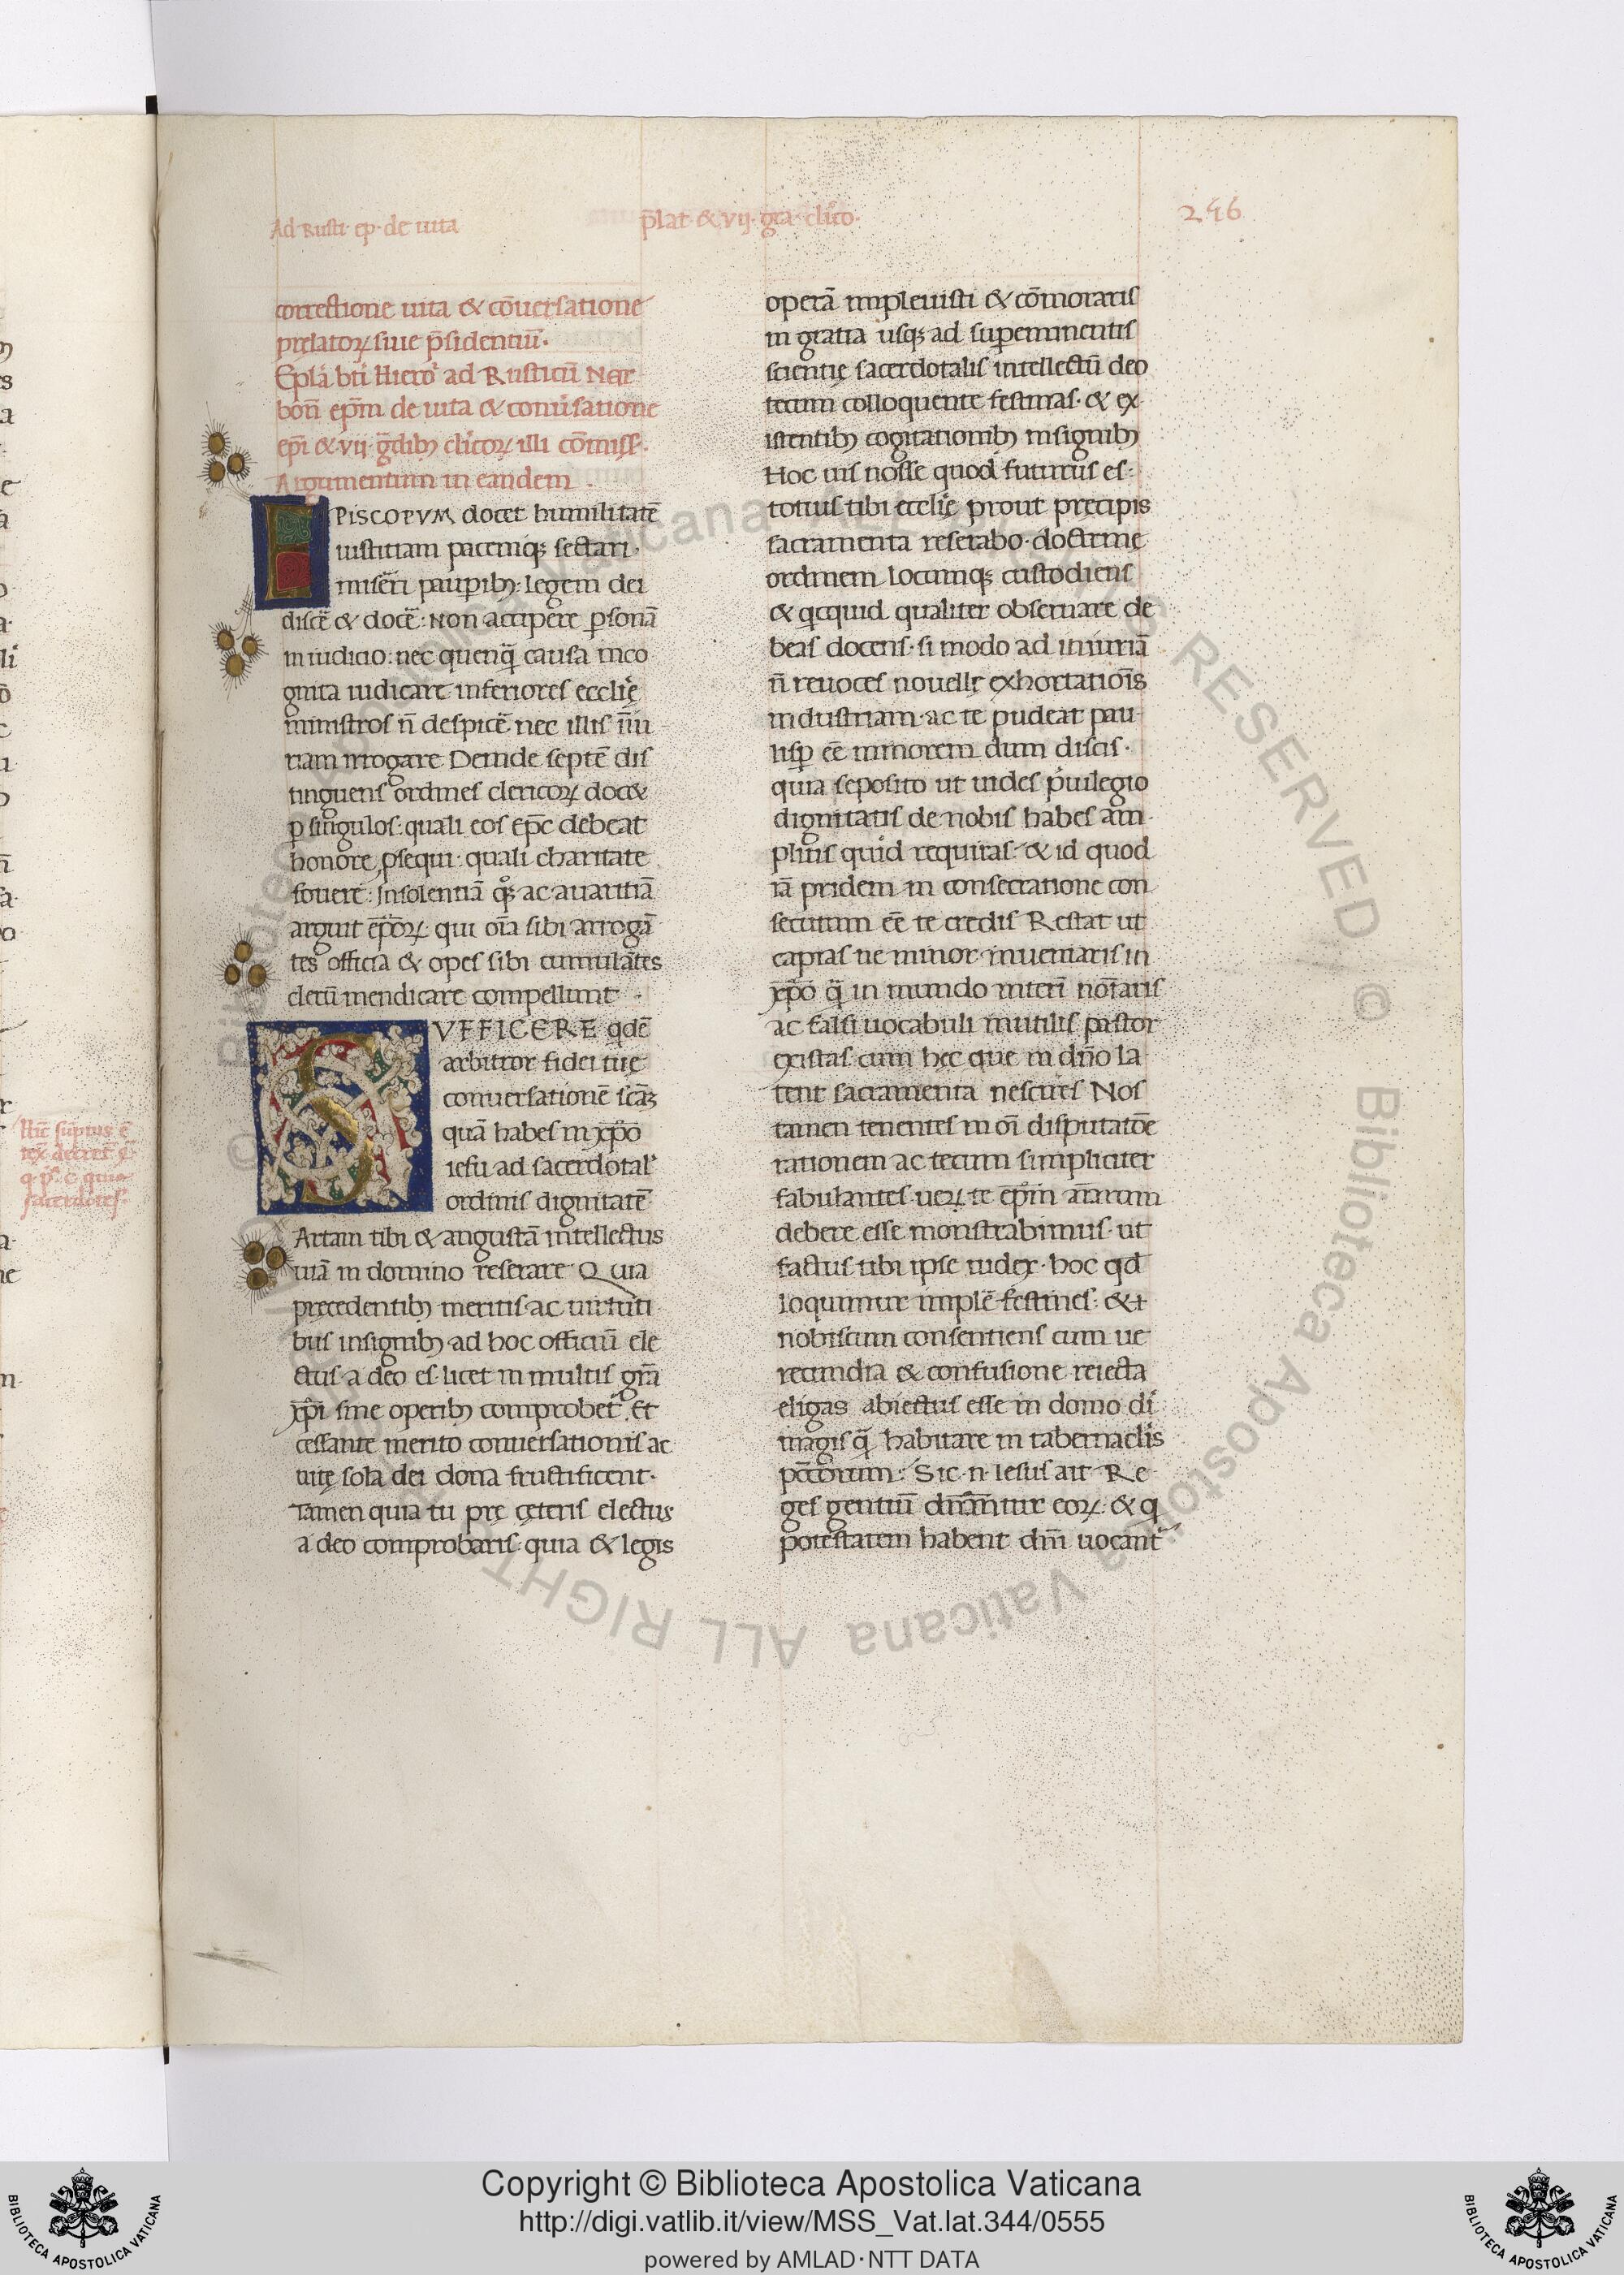 Ad Rusti· ep· de uita
p̄lat· & vij· gra· clico·
246
correctione uita & cōuersatione
prelatoꝝ siue p̄sidentiū·
Epl̄a bt̄i Hiero ad Rusticū Nar
bon̄ epm̄ de uita & conu̓satione
ep̄i & vij· gdib; clicoꝝ illi cōmiss·
Argumentum in eandem ·
EPISCOPVM docet humilitatē
iustitiam pacemq; sectari·
miseri paupib;: legem dei
discē & docē: Non accipere ꝑsonā
in iudicio: nec quenq̄ causa inco
gnita iudicare inferiores ecclię
ministros n̄ despicē nec illis īiu
riam irrogare Deinde septē dis
tinguens ordines clericoꝝ doc&
ꝑ singulos: quali eos epc̄ debeat
honore ꝓsequi· quali charitate
fouere: Insolentiā qͦꝫ ac auaritiā
arguit ep̄oꝝ· qui oīa sibi arrogā
tes officia & opes sibi cumulātes
clerū mendicare compellunt ·
SVFFICERE qdē
arbitror fidei tuę
conuersationē scāꝫ
quā habes in xp̄o
iesu ad sacerdotal̓
ordinis dignitatē
Artam tibi & angustā intellectus
uiā in domino reserare Quia
precedentib; meritis ac uirtuti
bus insignib; ad hoc officiū ele
ctus a deo es· licet in multis grā
xp̄i sine operib; comprobet̓· Et
cessante merito conuersationis ac
uitę sola dei dona fructificent·
Tamen quia tu prę ceteris electus
a deo comprobaris· quia & legis
operā impleuisti & cōmoraris
in gratia usq; ad supeminentis
scientię sacerdotalis intellectū deo
tecum colloquente festinas· & ex
istentib; cogitationib; insignib;
Hoc uis nosse quod futurus es·
totius tibi ecclię prout precipis
sacramenta reserabo· doctrine
ordinem locumq; custodiens
& qcquid qualiter obseruare de
beas docens· si modo ad iniuriā
n̄ reuoces nouellę exhortatiōis
industriam· ac te pudeat pau
lisꝑ eē minorem dum discis·
quia seposito ut uides p̓uilegio
dignitatis de nobis habes am
plius quid requiras· & id quod
iā pridem in consecratione con
secutum eē te credis Restat ut
capias ne minor inueniaris in
xp̄o q̄ in mundo interī noīaris
ac falsi uocabuli inutilis pastor
existas cum hęc que in dn̄o la
tent sacramenta nescires Nos
tamen tenentes in oī disputatōe
rationem ac tecum simpliciter
fabulantes ueꝝ te ep̄m aīarum
debere esse monstrabimus· ut
factus tibi ipse iudex· hoc qd
loquimur implē festines: &
nobiscum consentiens cum ue
recundia & confusione reiecta
eligas abiectus esse in domo dī
magis q̄ habitare in tabernaclis
pctorum: Sic· n· Iesus ait Re
ges gentiū dn̄antur eoꝝ· & q
potestatem habent dn̄i uocant̓
Hic suprius ē
sacerdotes·
© Biblioteca Apostolica Vaticana ALL RIGHTS RESERVED
© Biblioteca Apostolica Vaticana ALL RIGHTS RESERVED
Copyright © Biblioteca Apostolica Vaticana
http://digi.vatlib.it/view/MSS_Vat.lat.344/0555
powered by AMLAD·NTT DATA
BIBLIOTECA APOSTOLICA VATICANA
BIBLIOTECA APOSTOLICA VATICANA